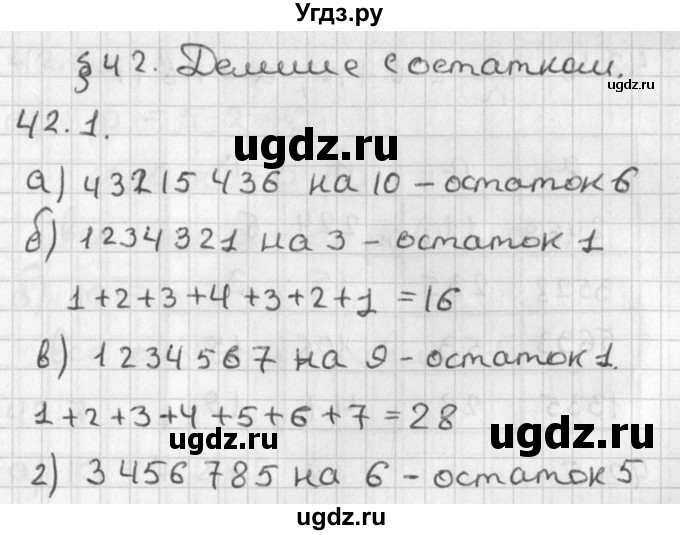 Угдз.ру
§42. Деление с остатком.
42.1.
ugdz.ru
ugdz.ru
а) 43215436 на 10 – остаток 6
б) 1234321 на 3 – остаток 1
1+2+3+4+3+2+1=16
в) 1234567 на 9 – остаток 1.
1+2+3+4+5+6+7=28
ugdz.ru
ugdz.ru
г) 3456785 на 6 – остаток 5
ugdz.ru